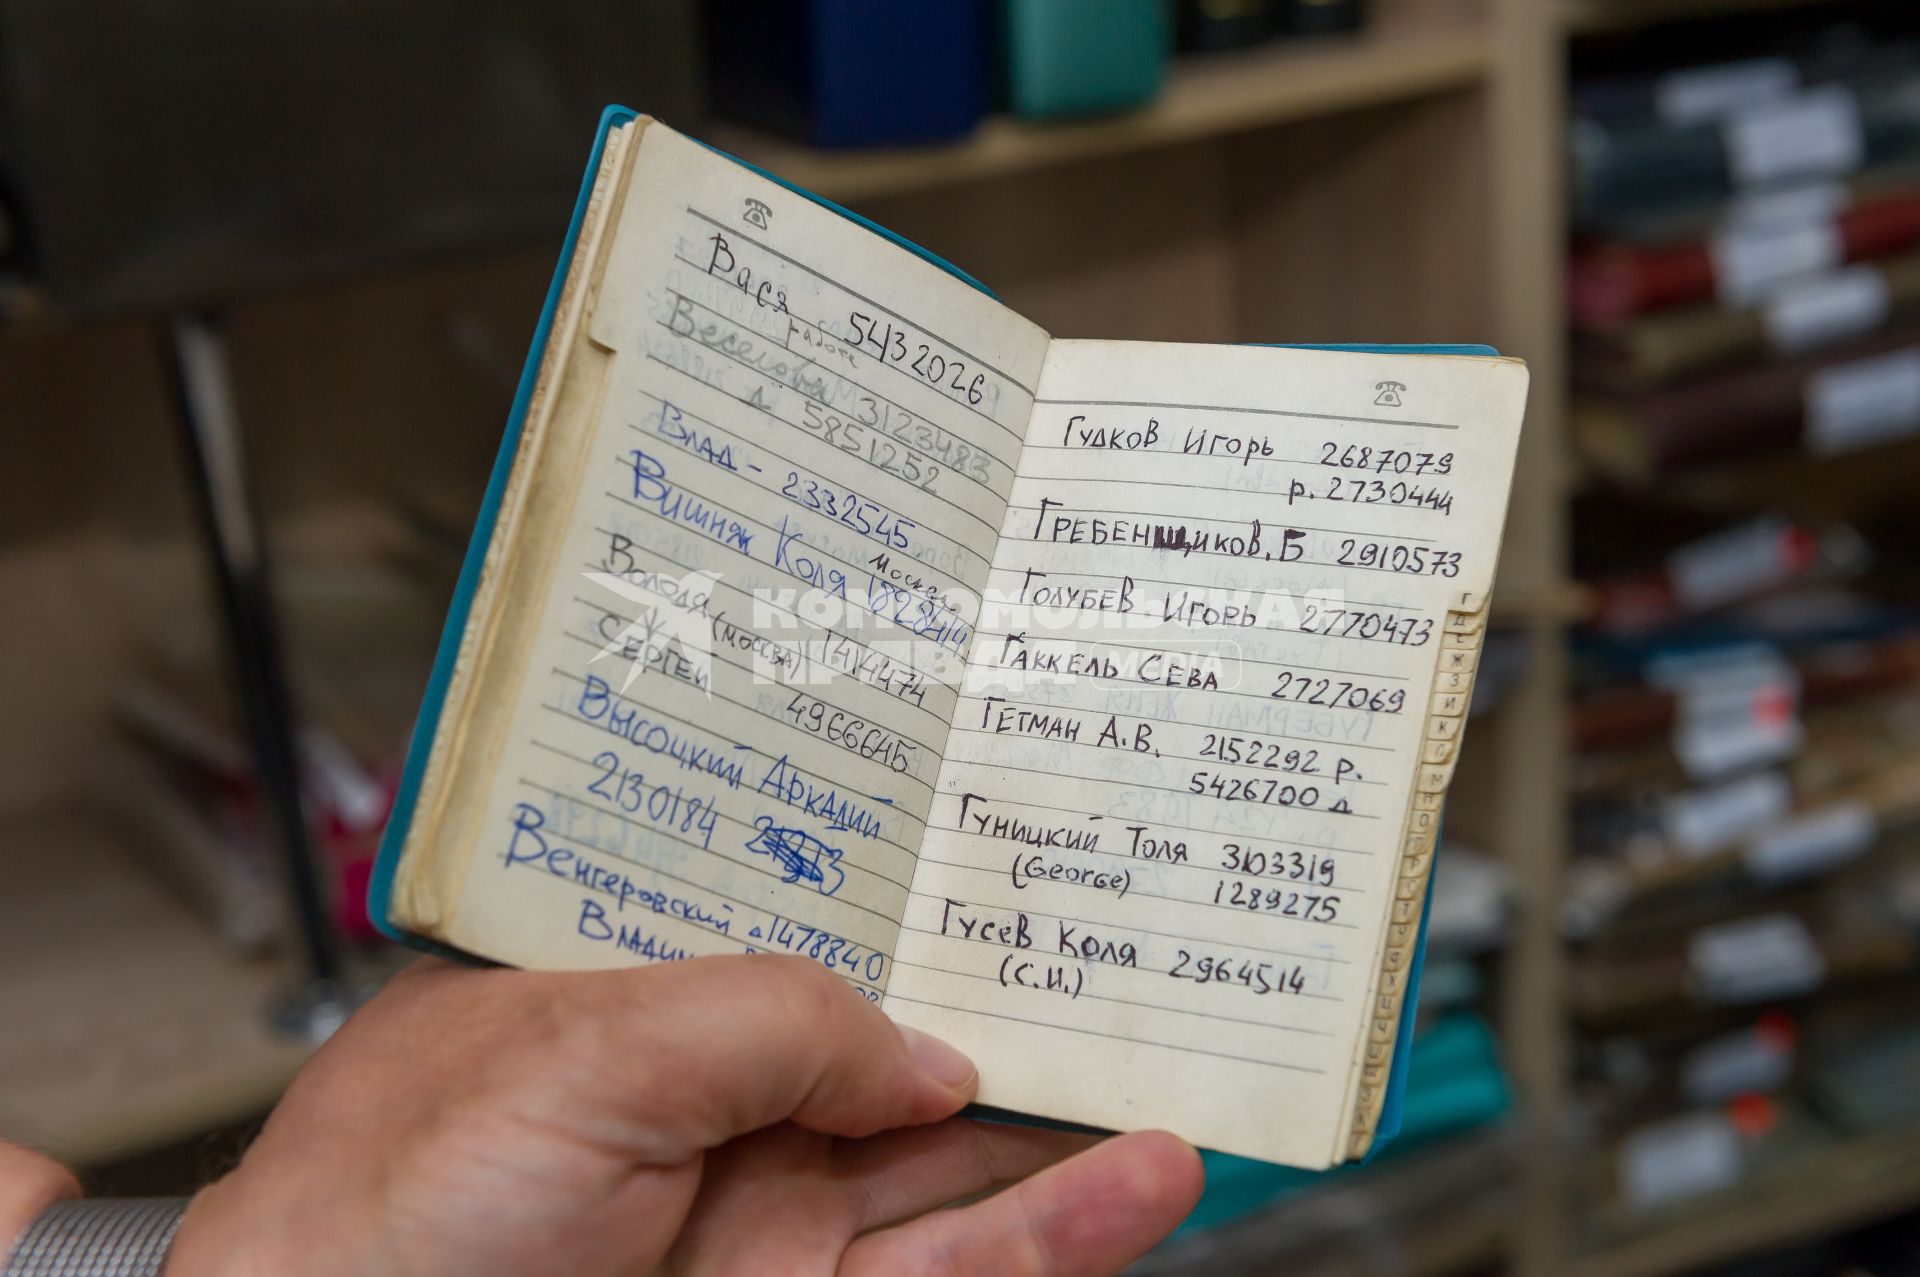 Вася 5432026
работа
Веселова 3123483
д 5851252
Влад - 2332545
Вишняк Коля 1828414
Москва
Володя (Москва) 1414474
Сергей 4966645
Высоцкий Аркадий
2130184
Венгеровский д 1478840
Владим
Гудков Игорь 2687079
р. 2730444
Гребенщиков. Б 2910573
Голубев. Игорь 2770473
Гаккель Сева 2727069
Гетман А.В. 2152292 р.
5426700 д
Гуницкий Толя 3103319
(George) 1289275
Гусев Коля 2964514
(С.И.)
Г
Д
Е
Ж
З
И
К
Л
М
КОМСОМОЛЬСКАЯ
ПРАВДА MEDIA